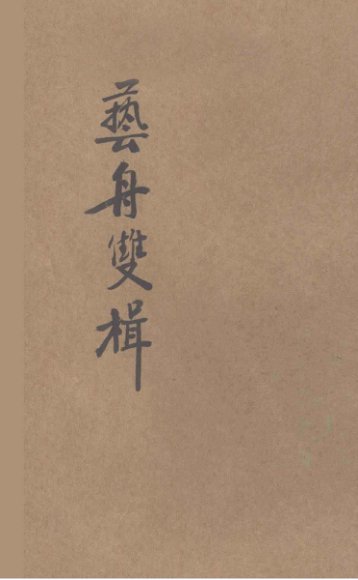 藝舟雙楫